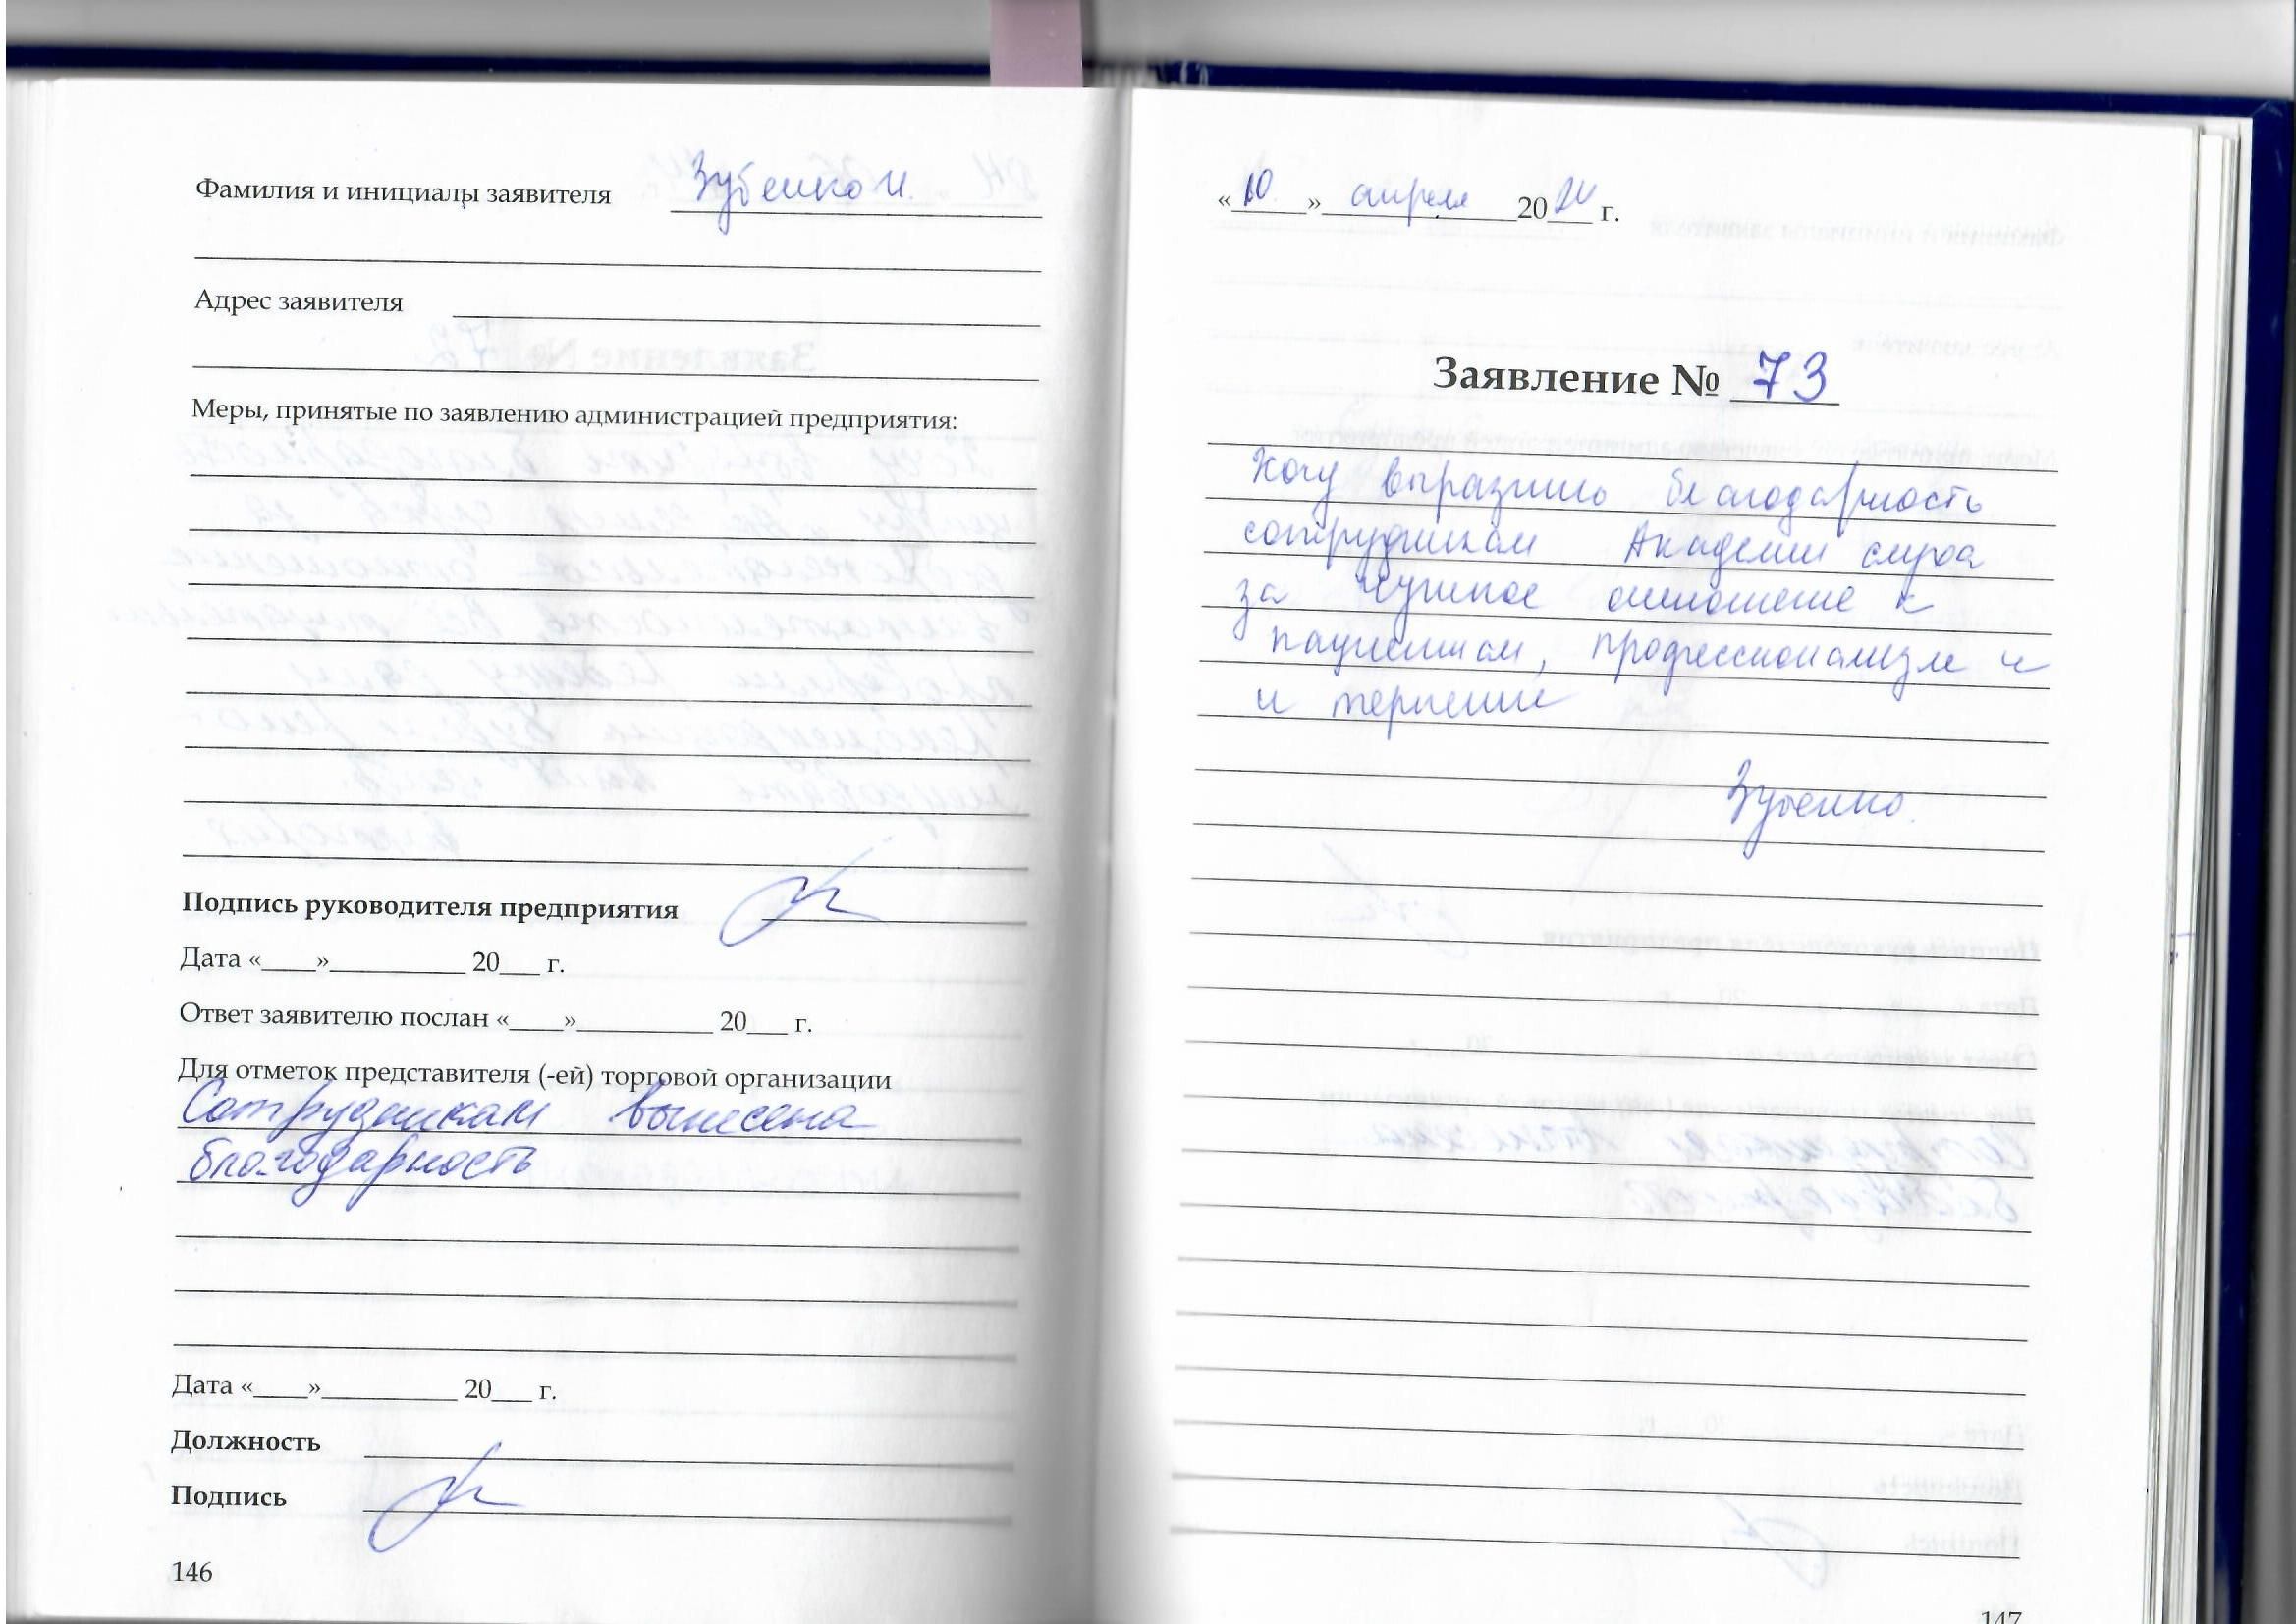 Фамилия и инициалы заявителя Зубенко И.
Адрес заявителя
Меры, принятые по заявлению администрацией предприятия:
Подпись руководителя предприятия
Дата «____»__________ 20___ г.
Ответ заявителю послан «____»__________ 20___ г.
Для отметок представителя (-ей) торговой организации
Сотрудникам вынесена
благодарность
Дата «____»__________ 20___ г.
Должность
Подпись
146
«10» апреля 20 г.
Заявление № 73
Хочу выразить благодарность
сотрудникам Академии слуха
за чуткое отношение к
пациентам, профессионализм и
и терпение
Зубенко.
147